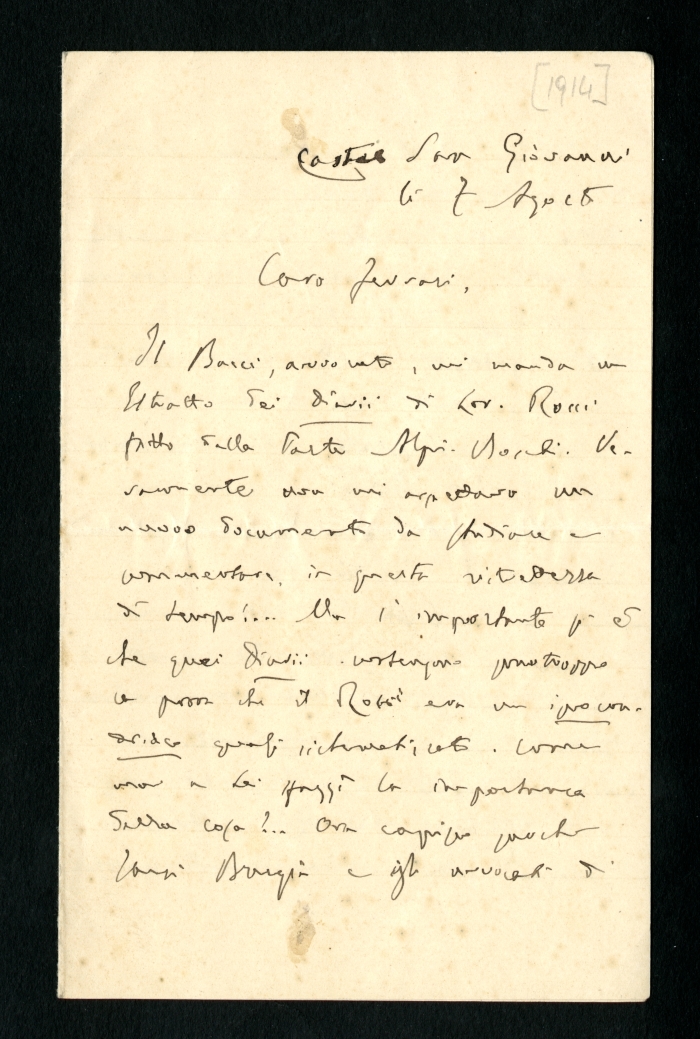 [1914]
Castel San Giovanni
li 7 Agosto
Caro Ferrari,
Il Bacci, avvocato, mi manda un
Estratto dei diarii di Lor. Rossi
fatto dalla Parte Alpi-. Ve-
ramente non mi aspettavo un
nuovo documento da studiare e
commentare, in questa ristrettezza
di tempo!... Ma l'importante è
che quei diarii contengono purtroppo
la prova che il Rossi era un ipocon-
driaco quasi sistematizzato. Come
mai a Lei sfuggì la importanza
della cosa?... Ora capisco perché
Borgia e gli avvocati di